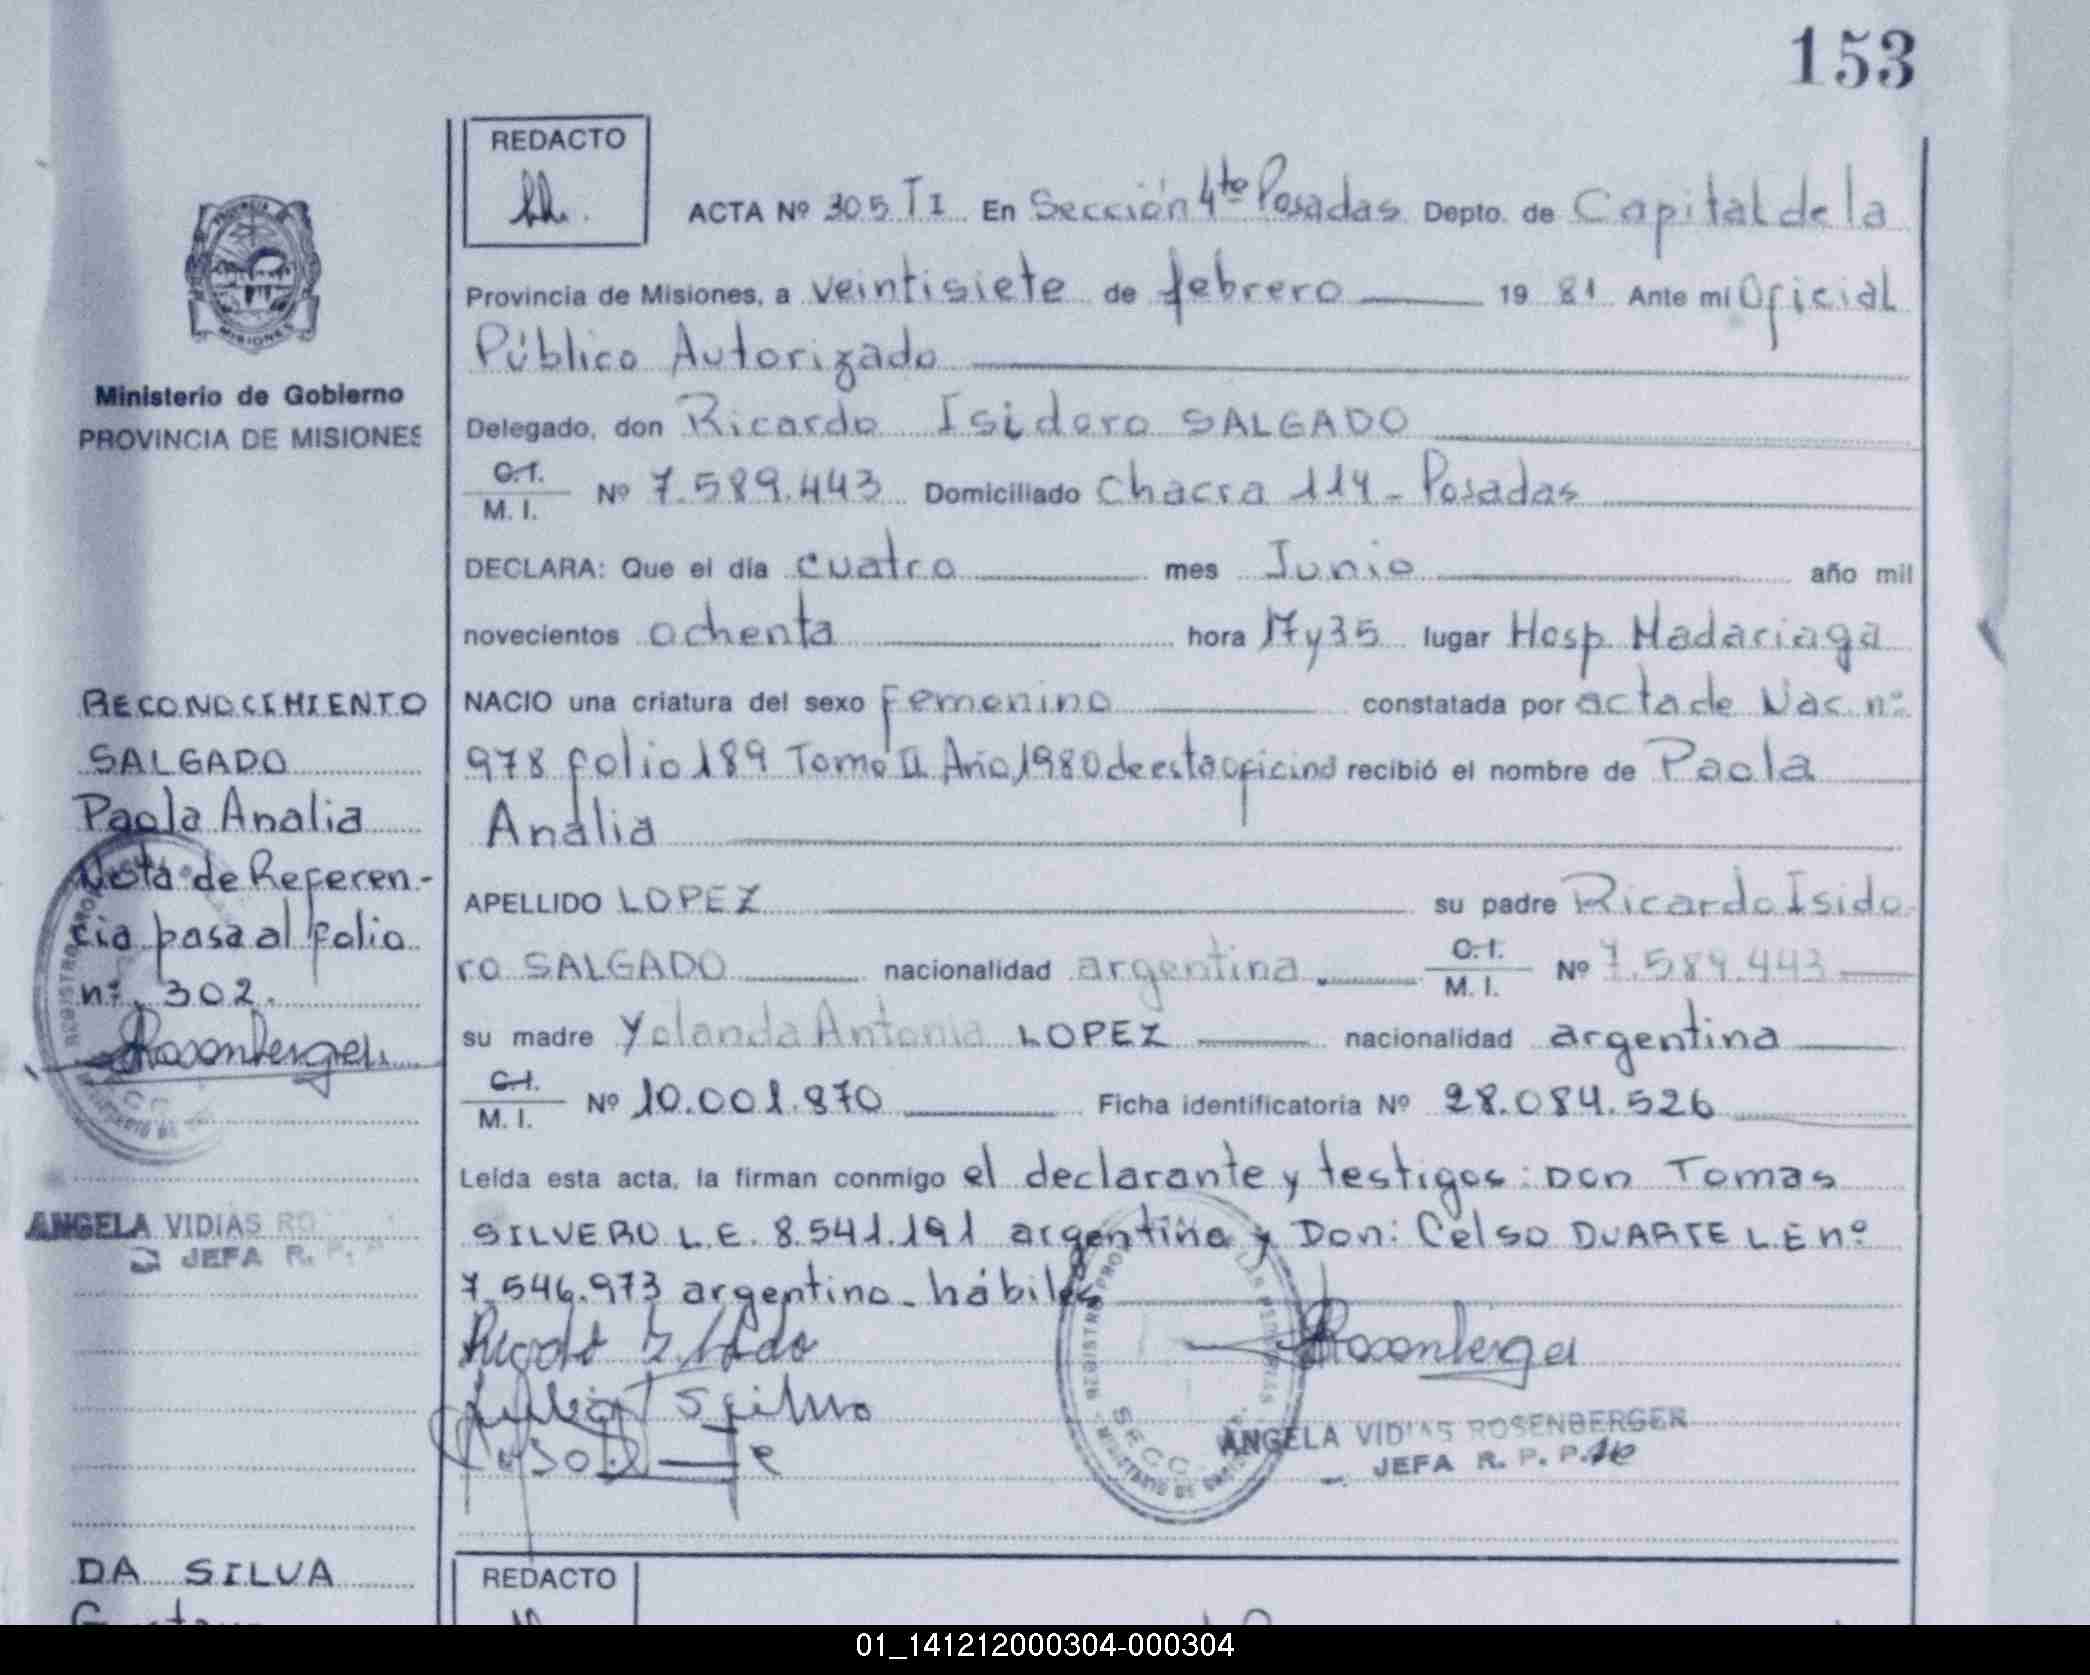 153
REDACTO
ACTA Nº 305 T I En Sección 4ta Posadas Depto. de Capital de la
Provincia de Misiones, a veintisiete de febrero 19 81 Ante mi Oficial
Público Autorizado
Delegado, don Ricardo Isidoro SALGADO
C.I.
M. I. Nº 7.589.443 Domiciliado Chacra 114 - Posadas
DECLARA: Que el día cuatro mes Junio año mil
novecientos ochenta hora 17 y 35 lugar Hosp. Madariaga
NACIO una criatura del sexo femenino constatada por acta de Nac. nº
978 folio 189 Tomo II Año 1980 de esta oficina recibió el nombre de Paola
Analia
APELLIDO LOPEZ su padre Ricardo Isido
ro SALGADO nacionalidad argentina C.I.
M. I. Nº 7.589.443
su madre Yolanda Antonia LOPEZ nacionalidad argentina
C.I.
M. I. Nº 10.001.870 Ficha identificatoria Nº 28.084.526
Leída esta acta, la firman conmigo el declarante y testigos: Don Tomas
SILVERO L.E. 8.541.191 argentino y Don: Celso DUARTE L.E nº
7.546.973 argentino - hábiles
Rosenberger
ANGELA VIDIAS ROSENBERGER
JEFA R. P. P.
MISIONES
Ministerio de Gobierno
PROVINCIA DE MISIONES
RECONOCIMIENTO
SALGADO
Paola Analia
Nota de Referen-
cia pasa al folio
nº 302.
Rosenberger
ANGELA VIDIAS RO
JEFA R. P.
DA SILVA
REDACTO
01_141212000304-000304